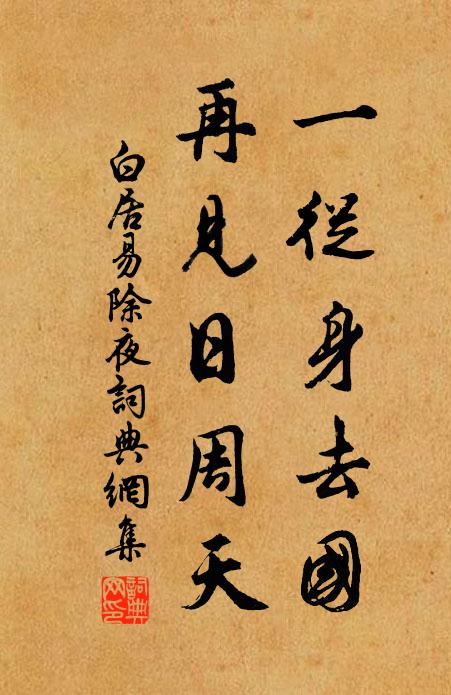 一從身去國
再見日周天
白居易除夜詞典網集
詞典网印